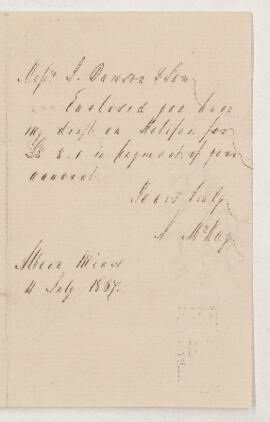 Messrs J. Dawson & Son
Enclosed you have
my draft on Halifax for
8.0 in payment of your
account
Yours truly
A McKay
Albion Mines
4 July 1867.